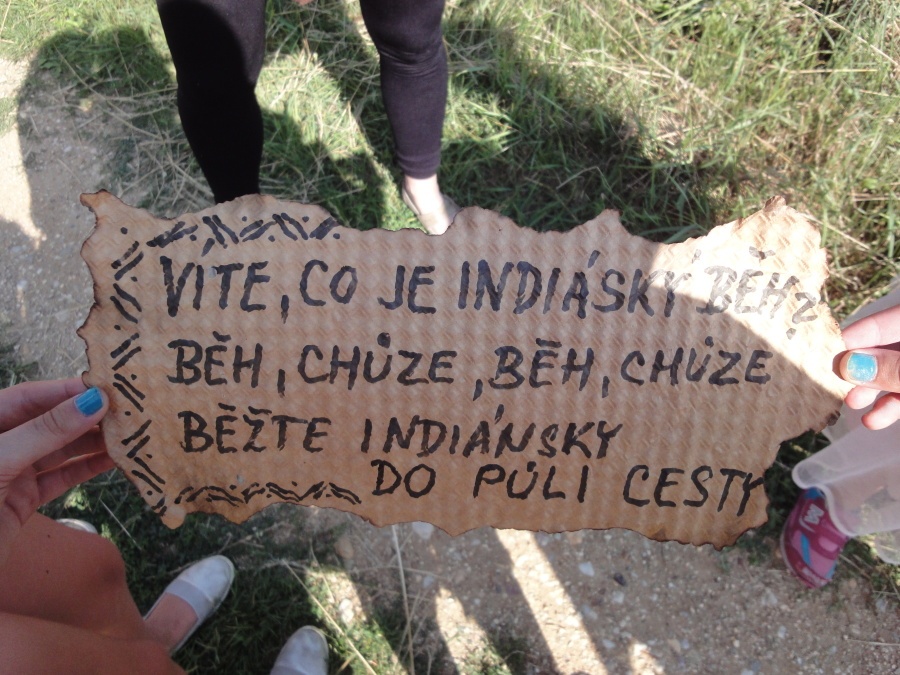 VITE, CO JE INDIÁSKÝ BĚH?
BĚH, CHŮZE, BĚH, CHŮZE
BĚŽTE INDIÁNSKY
DO PŮLI CESTY